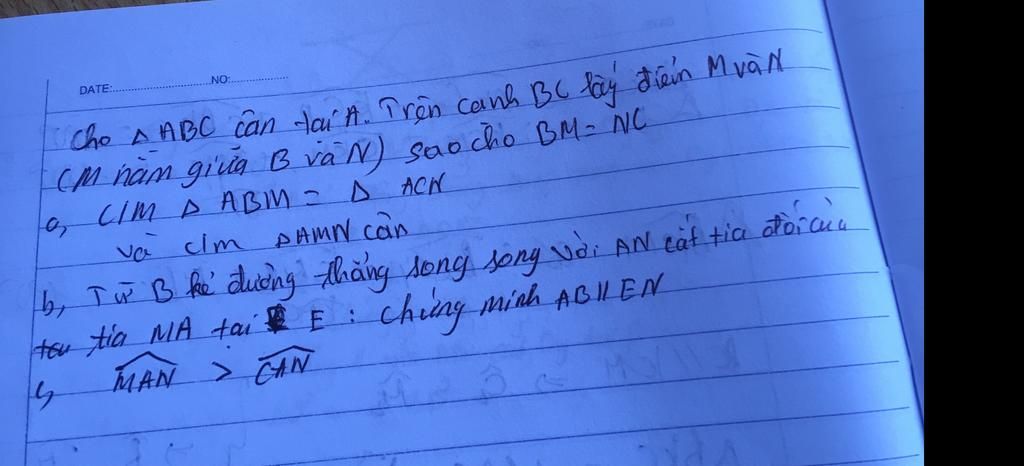 DATE:.................... NO:................
Cho Δ ABC cân tại A. Trên cạnh BC lấy điểm M và N
(M nằm giữa B và N) sao cho BM = NC
a, C/M Δ ABM = Δ ACN
và c/m ΔAMN cân
b, Từ B kẻ đường thẳng song song với AN cắt tia đối của
tia MA tại E : Chứng minh AB // EN
c, MAN > CAN